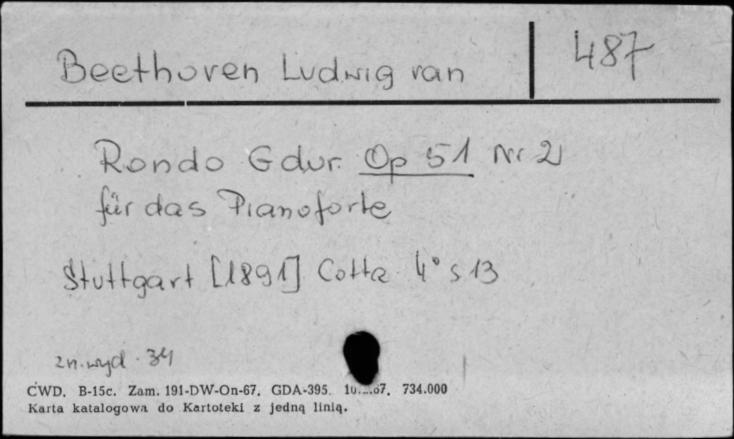 Beethoven Ludwig van 487
Rondo G dur. Op 51 Nr 2
für das Pianoforte
Stuttgart [1891] Cotta 4° s 13
zn. wyd. 34
CWD. B-15c. Zam. 191-DW-On-67. GDA-395. 67. 734.000
Karta katalogowa do Kartoteki z jedną linią.